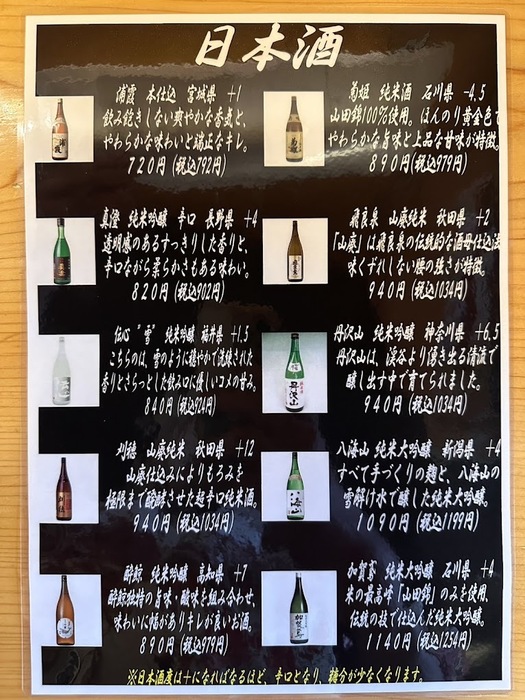 日本酒
浦霞 本仕込 宮城県 +1
飲み飽きしない爽やかな香煮と、
やわらかな味わいと端正なキレ。
720円(税込792円)
真澄 純米吟醸 辛口 長野県 +4
透明感のあるすっきりした香りと、
辛口ながら柔らかさもある味わい。
820円(税込902円)
伝心 "雪" 純米吟醸 福井県 +1.5
こちらのは、雪のように穏やかで洗練された
香りとさらっとした飲み口に優しいコメの甘み。
840円(税込924円)
刈穂 山廃純米 秋田県 +12
山廃仕込みによりもろみを
極限まで醗酵させた超辛口純米酒。
940円(税込1034円)
酔鯨 純米吟醸 高知県 +7
酔鯨独特の旨味・酸味を組み合わせ、
味わいに幅がありキレが良いお酒。
890円(税込979円)
菊姫 純米酒 石川県 -4.5
山田錦100%使用。ほんのり黄金色で
やわらかな旨味と上品な甘味が特徴。
890円(税込979円)
飛良泉 山廃純米 秋田県 +2
「山廃」は飛良泉の伝統的な酒母仕込法
味くずれしない腰の強さが特徴。
940円(税込1034円)
丹沢山 純米吟醸 神奈川県 +6.5
丹沢山は、渓谷より湧き出る清流で
醸し出す中で育てられました。
940円(税込1034円)
八海山 純米大吟醸 新潟県 +4
すべて手づくりの麹と、八海山の
雪解け水で醸した純米大吟醸。
1090円(税込1199円)
加賀鳶 純米大吟醸 石川県 +4
米の最高峰「山田錦」のみを使用、
伝統の技で仕込んだ純米大吟醸。
1140円(税込1254円)
※日本酒度は+になればなるほど、辛口となり、糖分が少なくなります。